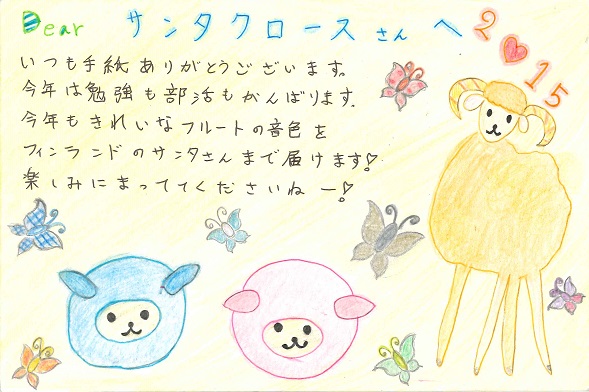 Dear サンタクロースさんへ
2♥15
いつも手紙ありがとうございます。
今年は勉強も部活もがんばります。
今年もきれいなフルートの音色を
フィンランドのサンタさんまで届けます!
楽しみにまっててくださいねー!